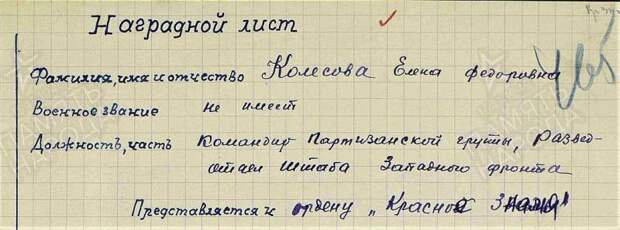 Наградной лист
Фамилия, имя и отчество Колесова Елена Федоровна
Военное звание не имеет
Должность, часть Командир Партизанской группы, развед-
отдел Штаба Западного фронта
Представляется к ордену „Красно